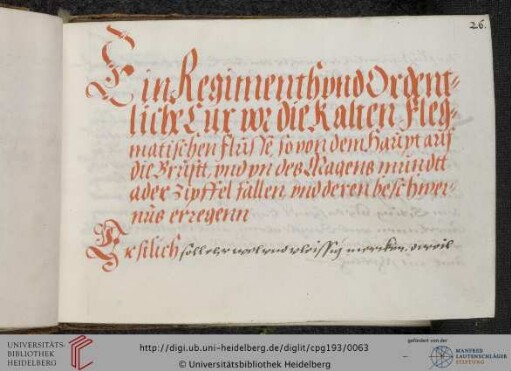 26.
Ein Regiment vnd Ordent-
liche Cur vor die Kalten Fleg-
matischen flüsse, so von dem Haupt auf
die Brüstt, vnd yn des Magens mundtt
oder Zipffel fallen, vnd deren beschwer-
nüs erregenn
Erstlich soll ehr wol vnd vleissig mercken, dweil
UNIVERSITÄTS-
BIBLIOTHEK
HEIDELBERG
http://digi.ub.uni-heidelberg.de/diglit/cpg193/0063
© Universitätsbibliothek Heidelberg
gefördert von der
MANFRED
LAUTENSCHLÄGER
STIFTUNG